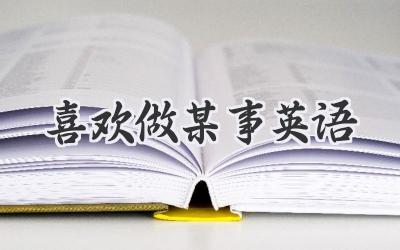 喜欢做某事英语